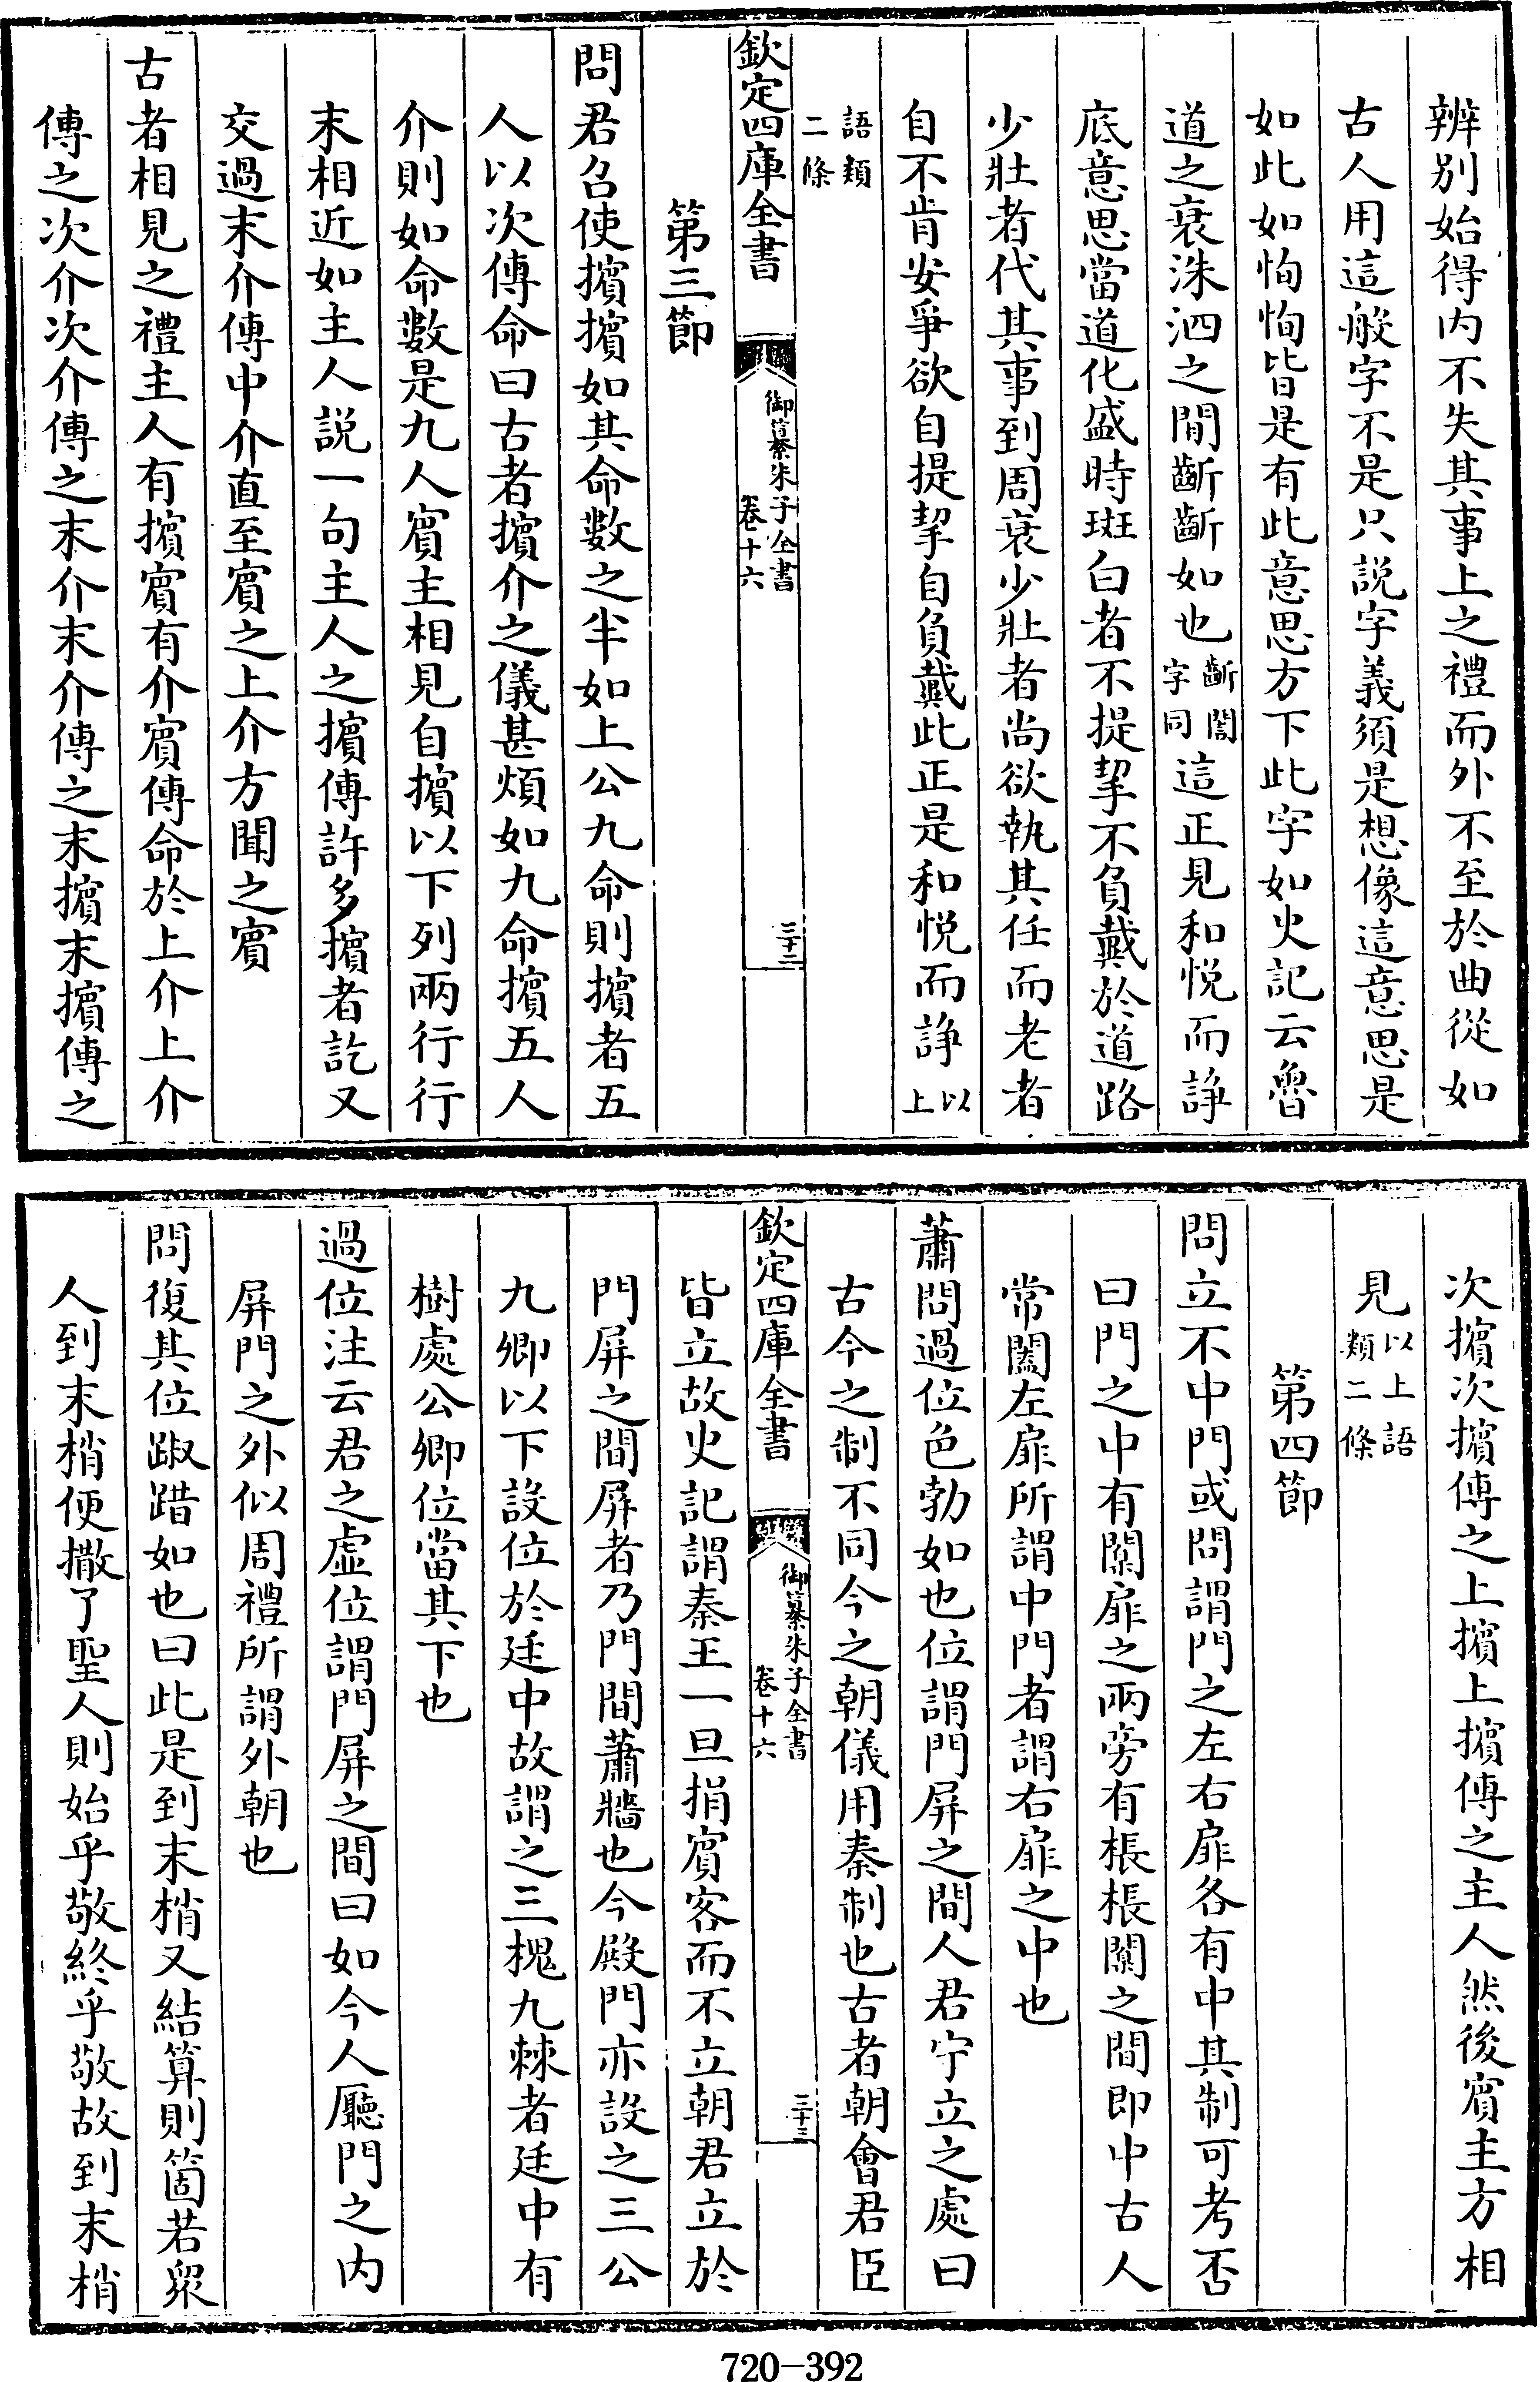 辨别始得内不失其事上之禮而外不至於曲從如
古人用這般字不是只説字義須是想像這意思是
如此如恂恂皆是有此意思方下此字如史記云魯
道之衰洙泗之間齗齗如也齗誾字同這正見和悦而諍
底意思當道化盛時斑白者不提挈不負戴於道路
少壯者代其事到周衰少壯者尚欲執其任而老者
自不肯安爭欲自提挈自負戴此正是和悦而諍以上
語類二條
欽定四庫全書
御纂朱子全書
卷十六
三十二
第三節
問君召使擯擯如其命數之半如上公九命則擯者五
人以次傳命曰古者擯介之儀甚煩如九命擯五人
介則如命數是九人賓主相見自擯以下列兩行行
末相近如主人説一句主人之擯傳許多擯者訖又
交過末介傳中介直至賓之上介方聞之賓
古者相見之禮主人有擯賓有介賓傳命於上介上介
傳之次介次介傳之末介末介傳之末擯末擯傳之
次擯次擯傳之上擯上擯傳之主人然後賓主方相
見以上語類二條
第四節
問立不中門或問謂門之左右扉各有中其制可考否
曰門之中有闑扉之兩旁有棖棖闑之間即中古人
常闔左扉所謂中門者謂右扉之中也
蕭問過位色勃如也位謂門屏之間人君宁立之處曰
古今之制不同今之朝儀用秦制也古者朝會君臣
欽定四庫全書
御纂朱子全書
卷十六
三十三
皆立故史記謂秦王一旦捐賓客而不立朝君立於
門屏之間屏者乃門間蕭牆也今殿門亦設之三公
九卿以下設位於廷中故謂之三槐九棘者廷中有
樹處公卿位當其下也
過位注云君之虛位謂門屏之間曰如今人廳門之内
屏門之外似周禮所謂外朝也
問復其位踧踖如也曰此是到末梢又結算則箇若衆
人到末梢便撒了聖人則始乎敬終乎敬故到末梢
720-392